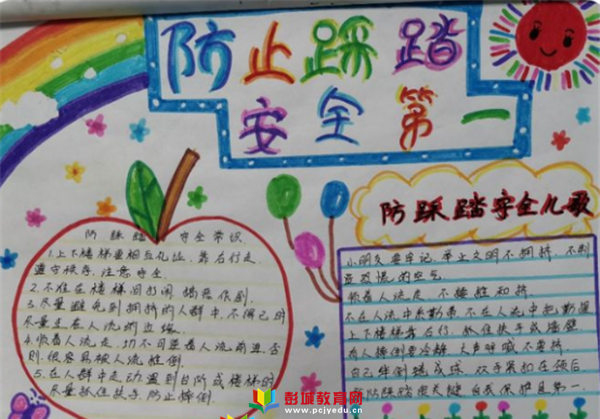 防止踩踏
安全第一
防踩踏安全常识
1.上下楼梯要相互礼让,靠右行走,
遵守秩序,注意安全.
2.不准在楼梯间打闹 搞恶作剧.
3.尽量避免到拥挤的人群中,不得已时
尽量走在人流的边缘.
4.顺着人流走,切不可逆着人流前进.否
则,很容易被人流推倒.
5.在人群中走动,遇到台阶或楼梯时
尽量抓住扶手,防止摔倒.
防踩踏安全儿歌
小朋友要牢记,举止文明不拥挤,不制
造恐慌的空气
顺着人流走 不推推和挤.
不在人流中系鞋带 不在人流中把物捡
上下楼梯靠右行 抓住扶手或墙壁
有人摔倒要冷静 大声呼喊不要挤.
自己绊倒蜷成球,双手紧扣在颈后
彭城教育网
www.pcjyedu.cn